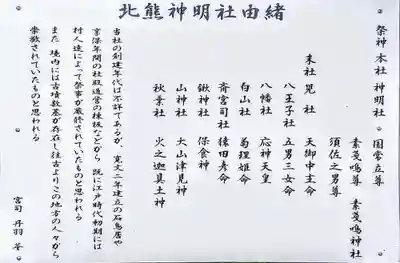 北熊神明社由緒
祭神 本社 神明社 国常立尊
素戔鳴尊 素戔鳴神社
須佐之男尊
末社 児社 天御中主命
八王子社 五男三女命
八幡社 応神天皇
白山社 菊理姫命
斎宮司社 猿田彦命
鍬神社 保食神
山神社 大山津見神
秋葉社 火之迦具土神
当社の創建年代は不詳であるが、寛文二年建立の石鳥居や
享保年間の社殿造営の棟板などから、既に江戸時代初期には
村人達によって祭事が厳修されていたものと思われる
また 境内には古墳数基が存在し往古よりこの地方の人々から
崇敬されていたものと思われる
宮司 丹羽